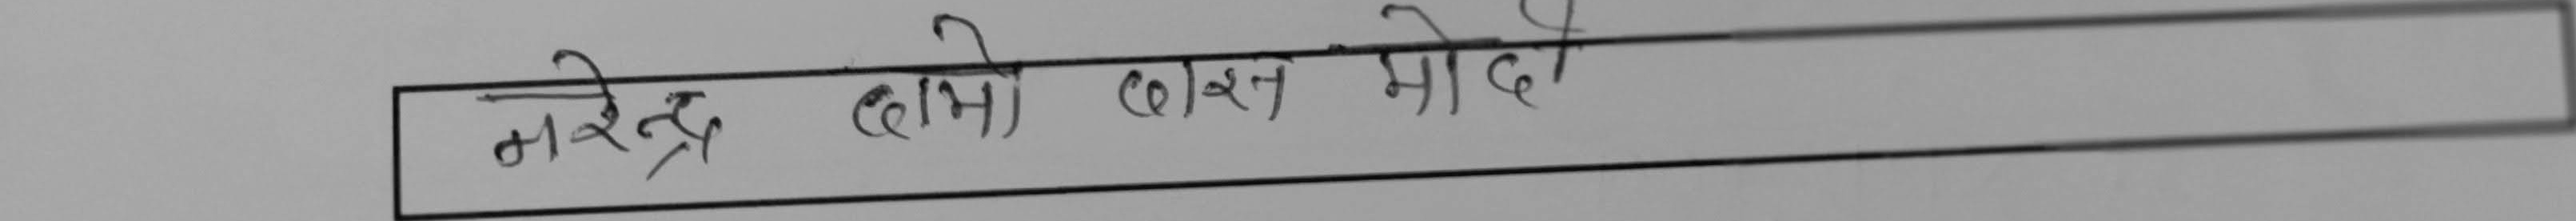 नरेन्द्र दामो दास मोदी